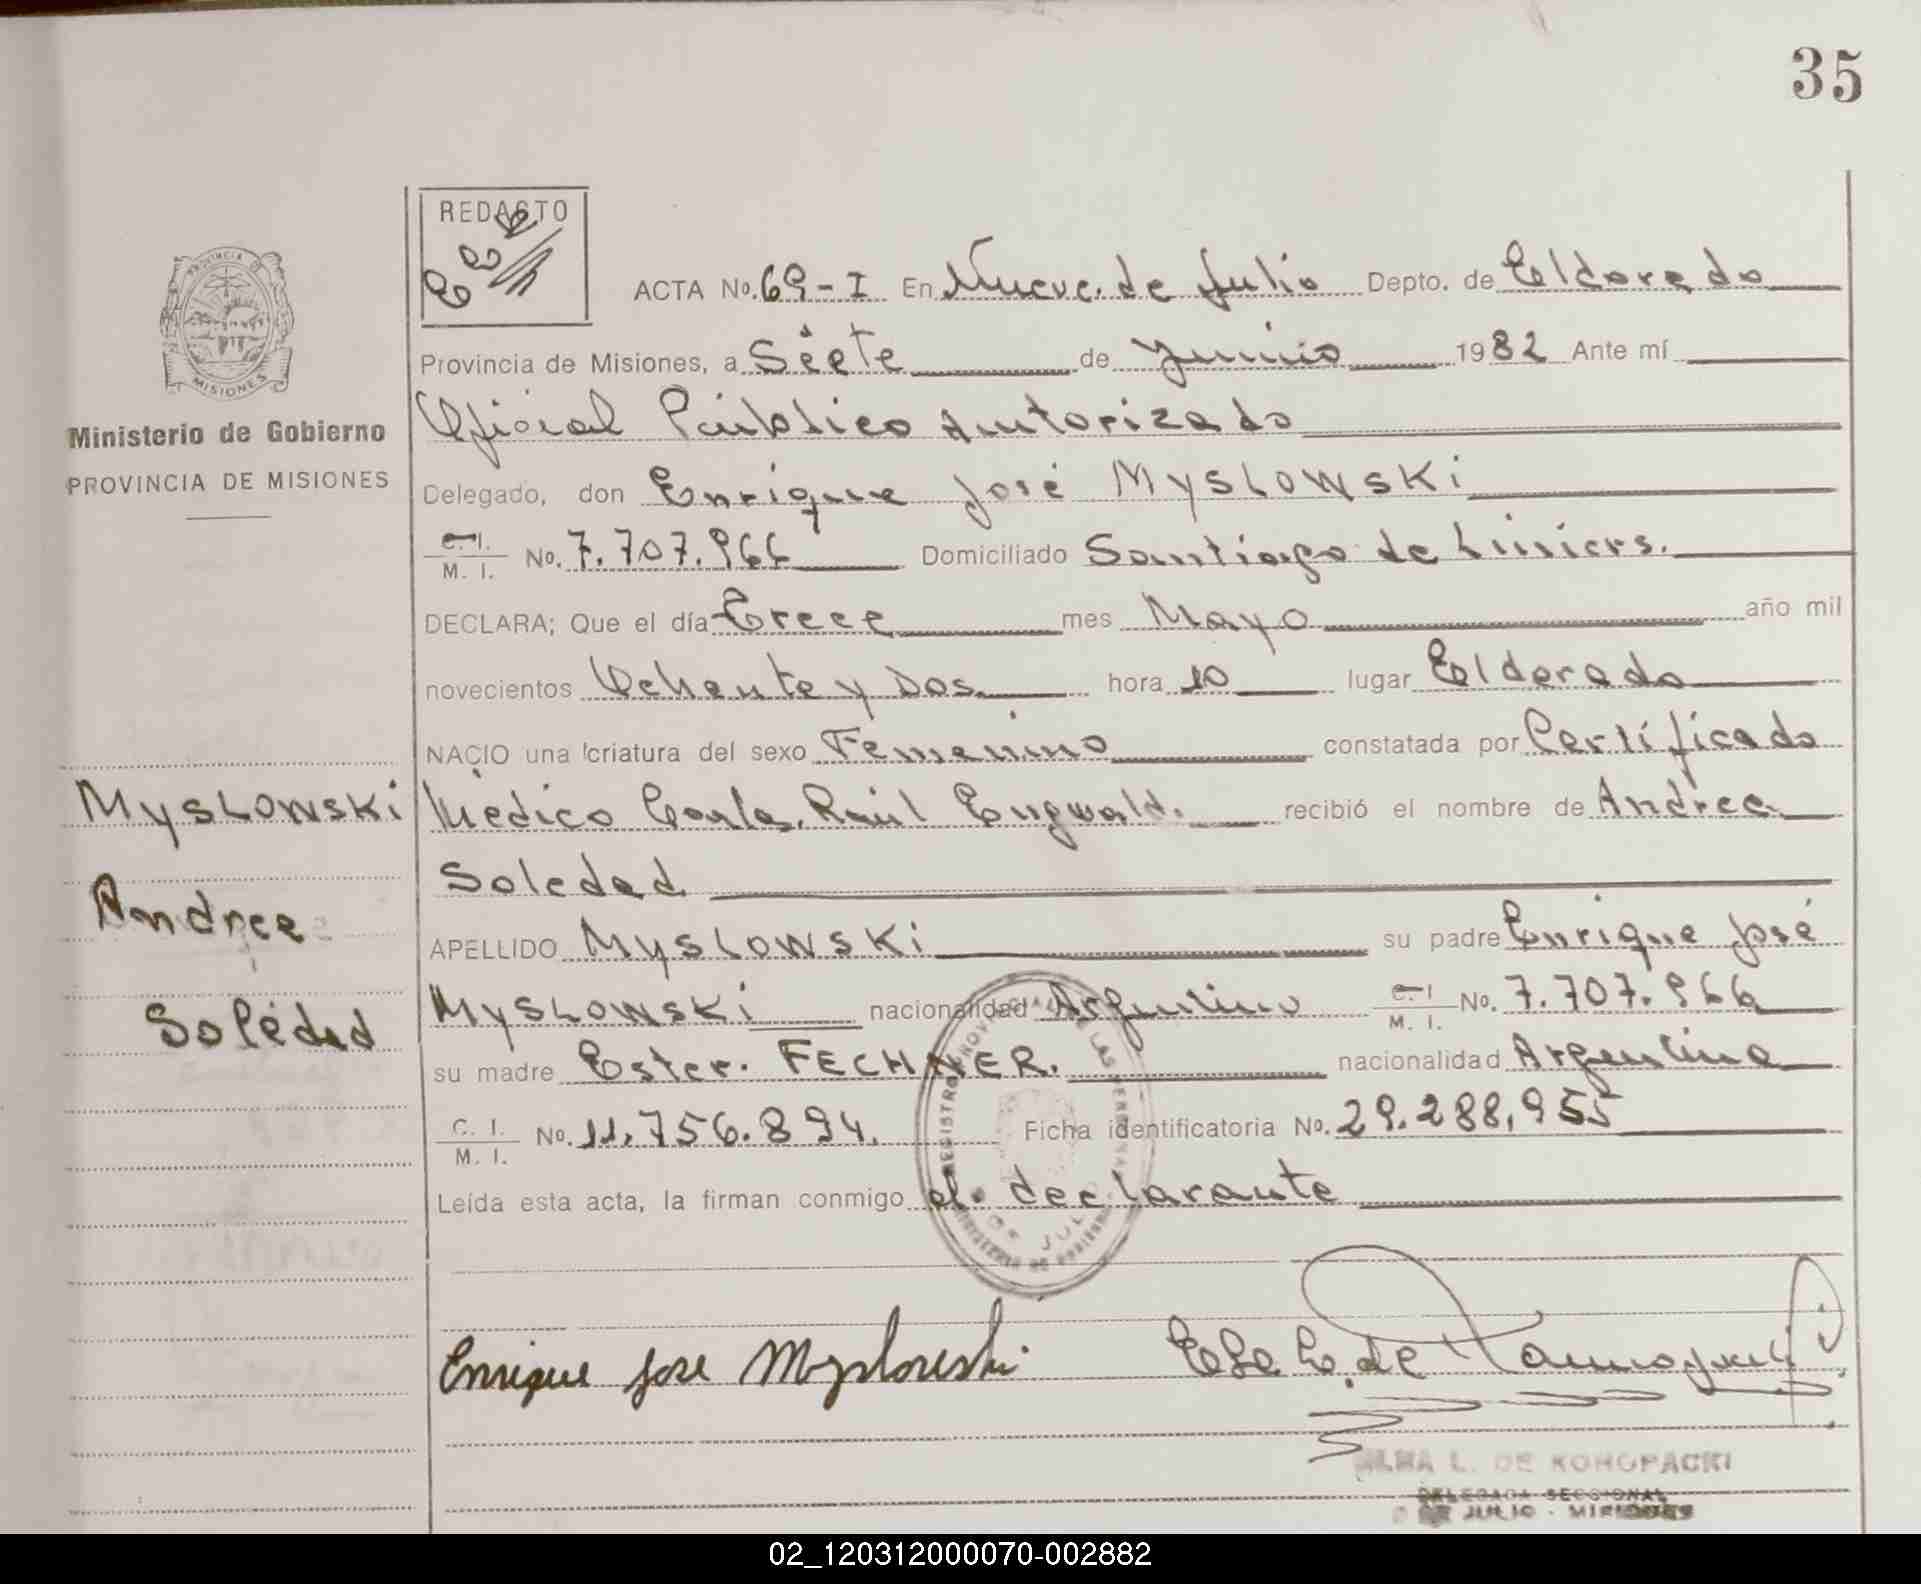 35
REDACTO
ACTA No. 69-I En Nueve de Julio Depto. de Eldorado
Provincia de Misiones, a Siete de Junio 1982 Ante mí
Oficial Público Autorizado
Delegado, don Enrique José MYSLOWSKI
C. I.
M. I. No. 7.707.966 Domiciliado Santiago de Liniers.
DECLARA; Que el día Trece mes Mayo año mil
novecientos Ochenta y Dos hora 10 lugar Eldorado
NACIO una criatura del sexo Femenino constatada por Certificado
Médico Carlos Raúl Engwald. recibió el nombre de Andrea
Soledad
APELLIDO MYSLOWSKI su padre Enrique José
MYSLOWSKI nacionalidad Argentino C. I.
M. I. No. 7.707.966
su madre Ester. FECHNER. nacionalidad Argentina
C. I.
M. I. No. 11.756.894. Ficha identificatoria No. 29.288.955
Leída esta acta, la firman conmigo el declarante
Enrique Jose Myslowski
L. DE KONOPACKI
DELEGADA SECCIONAL
9 DE JULIO - MISIONES
PROVINCIA DE
MISIONES
Ministerio de Gobierno
PROVINCIA DE MISIONES
MYSLOWSKI
Andrea
Soledad
02_120312000070-002882